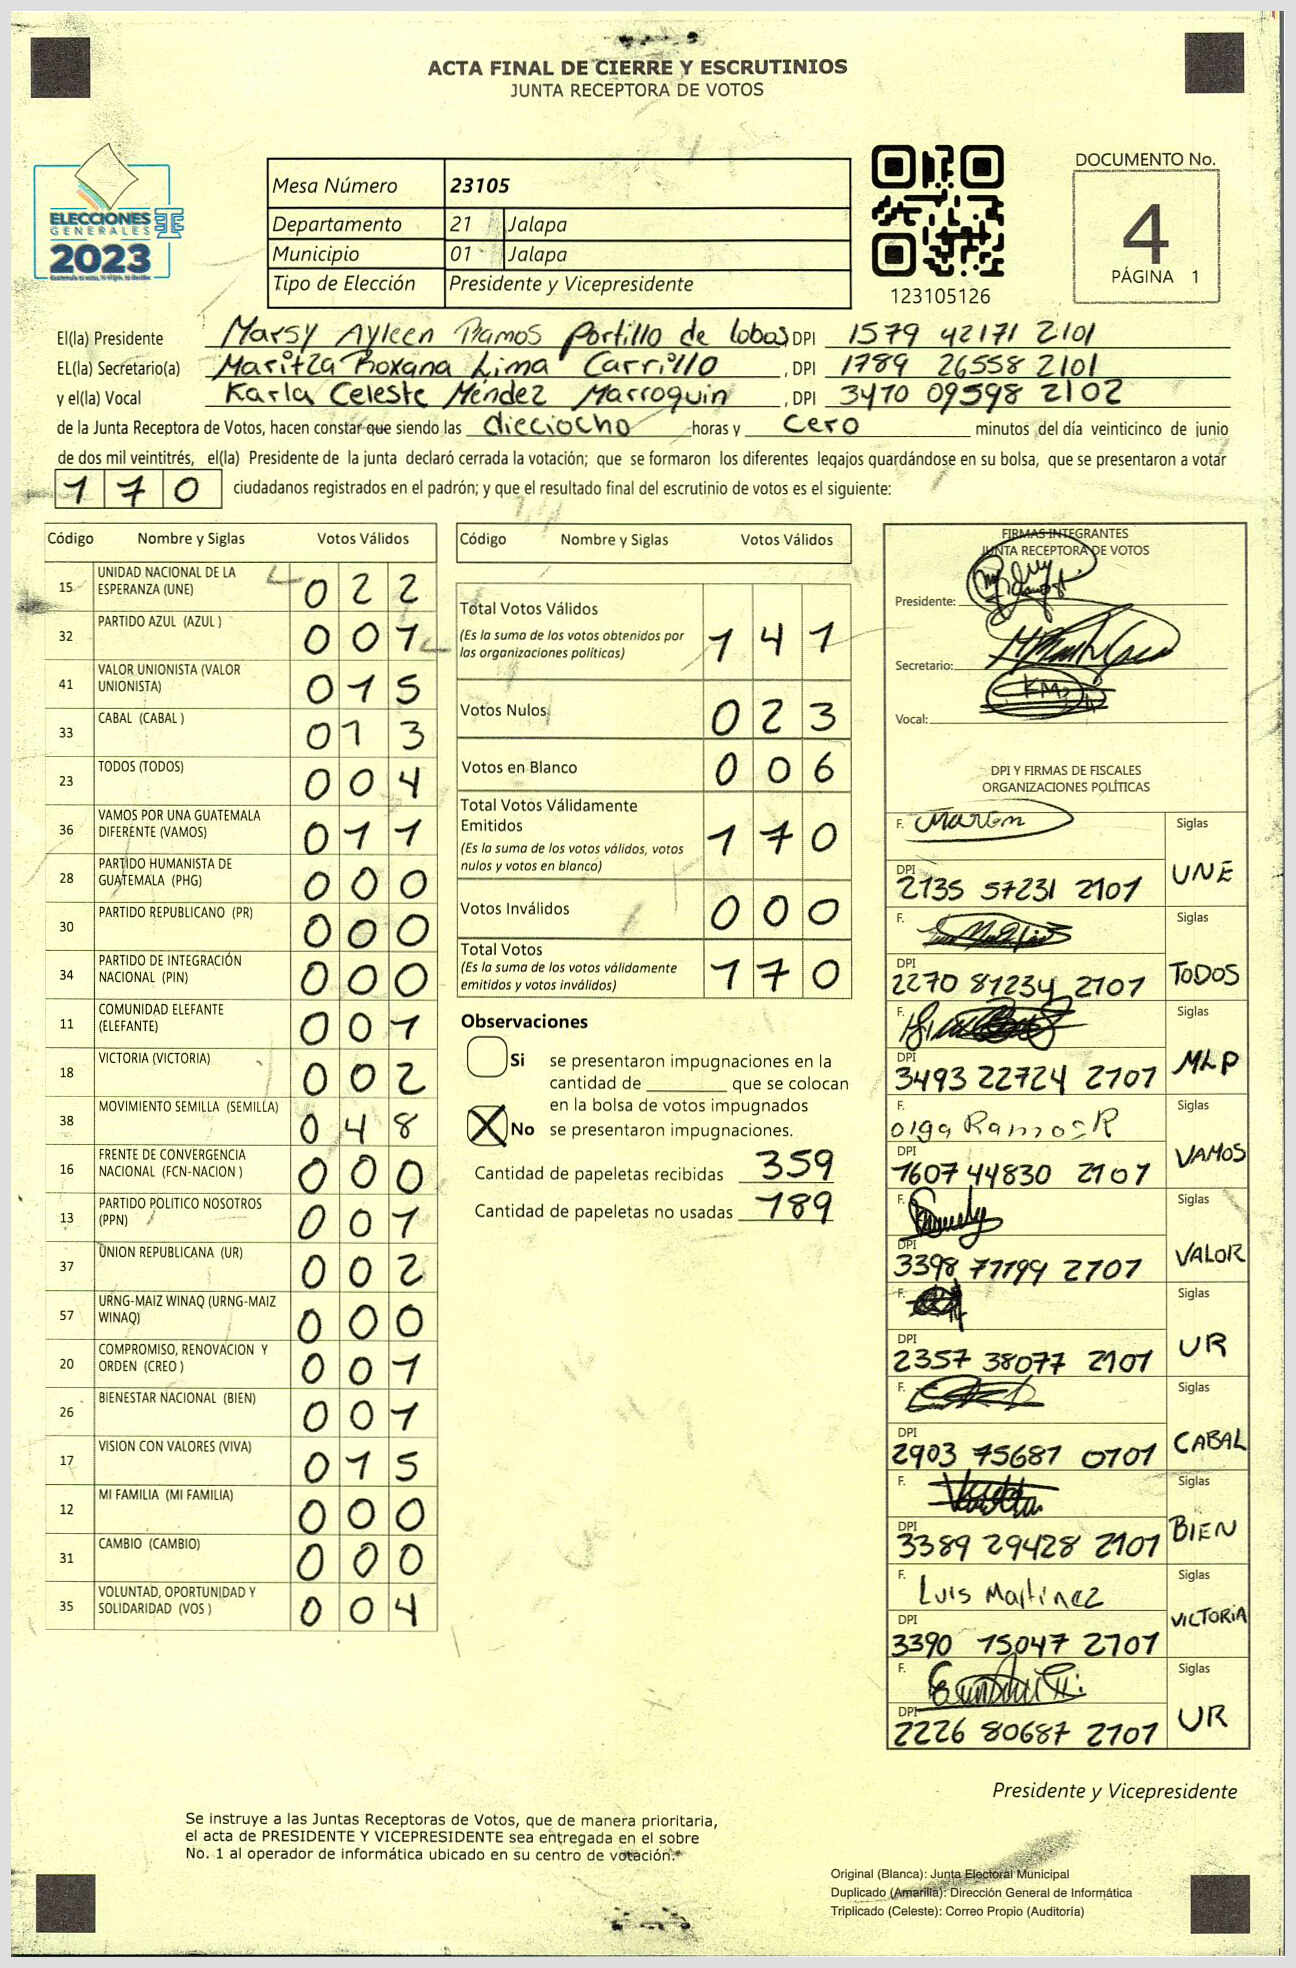 ACTA FINAL DE CIERRE Y ESCRUTINIOS
JUNTA RECEPTORA DE VOTOS
ELECCIONES
GENERALES
2023
Mesa Número 23105
Departamento 21 Jalapa
Municipio 01 Jalapa
Tipo de Elección Presidente y Vicepresidente
123105126
DOCUMENTO No.
4
PÁGINA 1
El(la) Presidente Marsy Ayleen Ramos Portillo de lobos DPI 1579 42171 2101
EL(la) Secretario(a) Maritza Roxana Lima Carrillo, DPI 1789 26558 2101
y el(la) Vocal Karla Celeste Méndez Marroquin, DPI 3470 09598 2102
de la Junta Receptora de Votos, hacen constar que siendo las dieciocho horas y cero minutos del día veinticinco de junio
de dos mil veintitrés, el(la) Presidente de la junta declaró cerrada la votación; que se formaron los diferentes legajos guardándose en su bolsa, que se presentaron a votar
170 ciudadanos registrados en el padrón; y que el resultado final del escrutinio de votos es el siguiente:
Código Nombre y Siglas Votos Válidos
15 UNIDAD NACIONAL DE LA ESPERANZA (UNE) 022
32 PARTIDO AZUL (AZUL ) 001
41 VALOR UNIONISTA (VALOR UNIONISTA) 015
33 CABAL (CABAL ) 013
23 TODOS (TODOS) 004
36 VAMOS POR UNA GUATEMALA DIFERENTE (VAMOS) 011
28 PARTIDO HUMANISTA DE GUATEMALA (PHG) 000
30 PARTIDO REPUBLICANO (PR) 000
34 PARTIDO DE INTEGRACIÓN NACIONAL (PIN) 000
11 COMUNIDAD ELEFANTE (ELEFANTE) 001
18 VICTORIA (VICTORIA) 002
38 MOVIMIENTO SEMILLA (SEMILLA) 048
16 FRENTE DE CONVERGENCIA NACIONAL (FCN-NACION ) 000
13 PARTIDO POLITICO NOSOTROS (PPN) 001
37 UNION REPUBLICANA (UR) 002
57 URNG-MAIZ WINAQ (URNG-MAIZ WINAQ) 000
20 COMPROMISO, RENOVACION Y ORDEN (CREO ) 001
26 BIENESTAR NACIONAL (BIEN) 001
17 VISION CON VALORES (VIVA) 015
12 MI FAMILIA (MI FAMILIA) 000
31 CAMBIO (CAMBIO) 000
35 VOLUNTAD, OPORTUNIDAD Y SOLIDARIDAD (VOS ) 004
Código Nombre y Siglas Votos Válidos
Total Votos Válidos 141
(Es la suma de los votos obtenidos por
las organizaciones políticas)
Votos Nulos 023
Votos en Blanco 006
Total Votos Válidamente
Emitidos 170
(Es la suma de los votos válidos, votos
nulos y votos en blanco)
Votos Inválidos 000
Total Votos 170
(Es la suma de los votos válidamente
emitidos y votos inválidos)
Observaciones
Si se presentaron impugnaciones en la
cantidad de ________ que se colocan
en la bolsa de votos impugnados
X No se presentaron impugnaciones.
Cantidad de papeletas recibidas 359
Cantidad de papeletas no usadas 189
FIRMAS INTEGRANTES
JUNTA RECEPTORA DE VOTOS
Presidente:
Secretario:
Vocal:
DPI Y FIRMAS DE FISCALES
ORGANIZACIONES POLÍTICAS
F. Siglas
DPI 2135 57231 2101 UNE
F. Siglas
DPI 2270 81234 2101 TODOS
F. Siglas
DPI 3493 22724 2101 MLP
F. Olga Ramos R Siglas
DPI 1607 44830 2101 VAMOS
F. Siglas
DPI 3398 71199 2101 VALOR
F. Siglas
DPI 2357 38077 2101 UR
F. Siglas
DPI 2903 75687 0101 CABAL
F. Siglas
DPI 3389 29428 2101 BIEN
F. Luis Martinez Siglas
DPI 3390 15047 2101 VICTORIA
F. Siglas
DPI 2226 80687 2101 UR
Presidente y Vicepresidente
Se instruye a las Juntas Receptoras de Votos, que de manera prioritaria,
el acta de PRESIDENTE Y VICEPRESIDENTE sea entregada en el sobre
No. 1 al operador de informática ubicado en su centro de votación.
Original (Blanca): Junta Electoral Municipal
Duplicado (Amarilla): Dirección General de Informática
Triplicado (Celeste): Correo Propio (Auditoría)